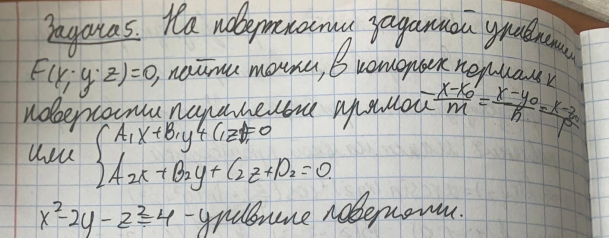 Задача 5. На поверхности заданной уравнением
F(x; y; z)=0, найти точки, в которых нормаль к
поверхности параллельна прямой x-x₀/m = x-y₀/n = x-z₀/p
или { A₁x+B₁y+C₁z=0
A₂x+B₂y+C₂z+D₂=0.
x²-2y-z²=4 - уравнение поверхности.